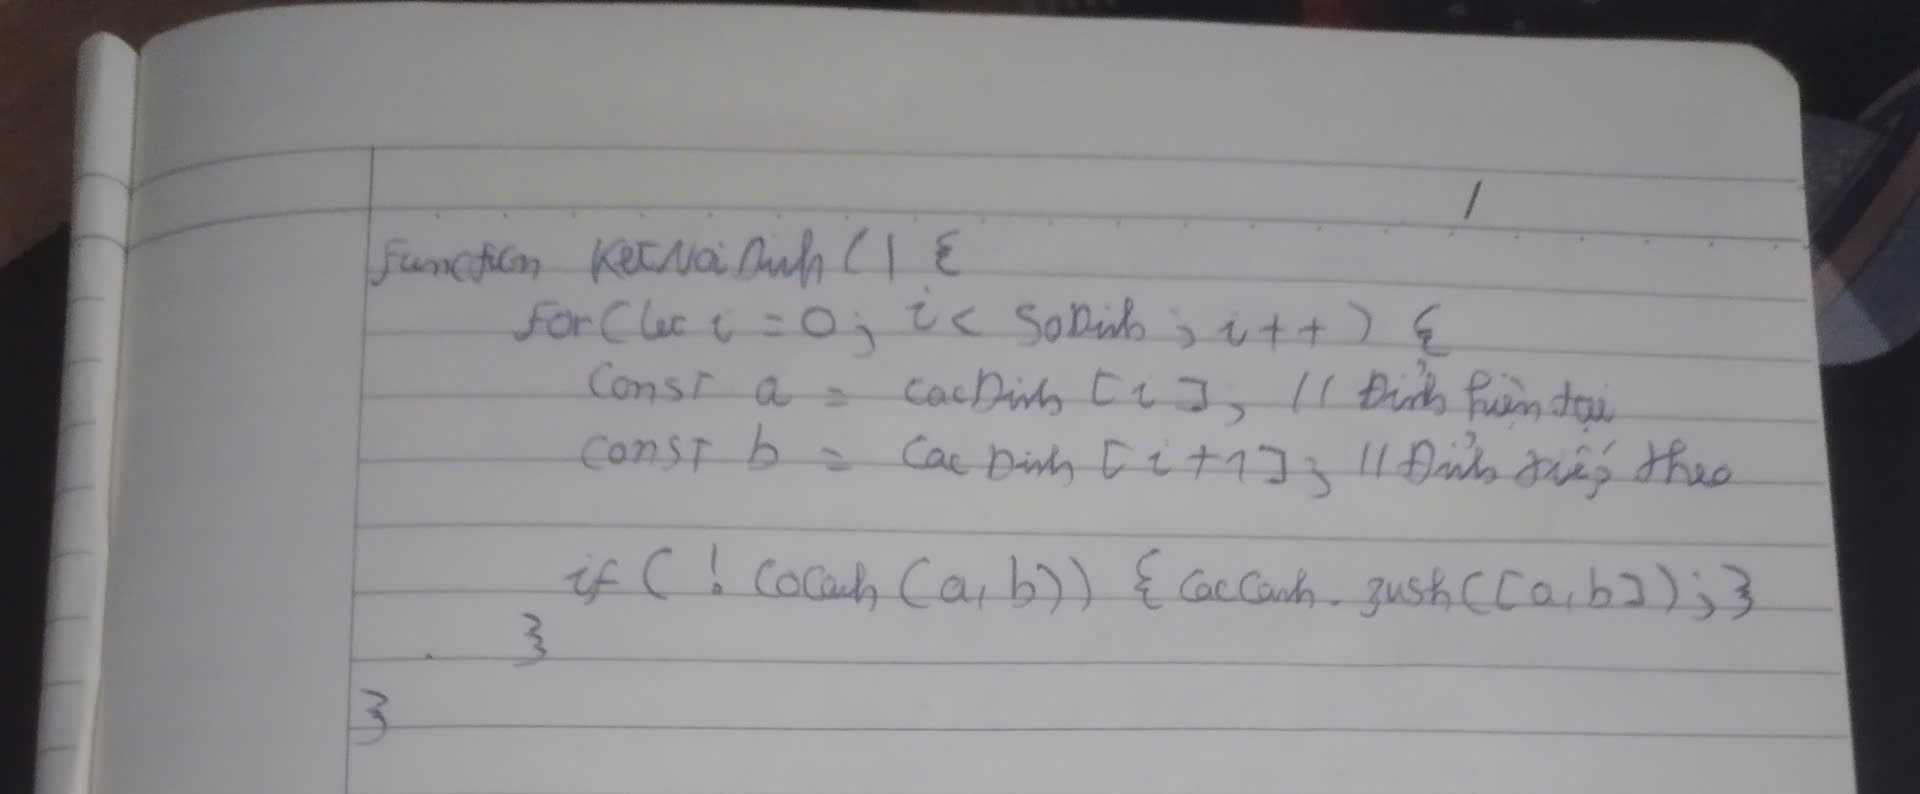 function KetNoiDinh() {
for(let i = 0; i < SoDinh; i++) {
const a = cacDinh[i]; // Đỉnh hiện tại
const b = cacDinh[i+1]; // Đỉnh tiếp theo
if (! CoCanh(a, b)) { CacCanh.push([a, b]); }
}
}